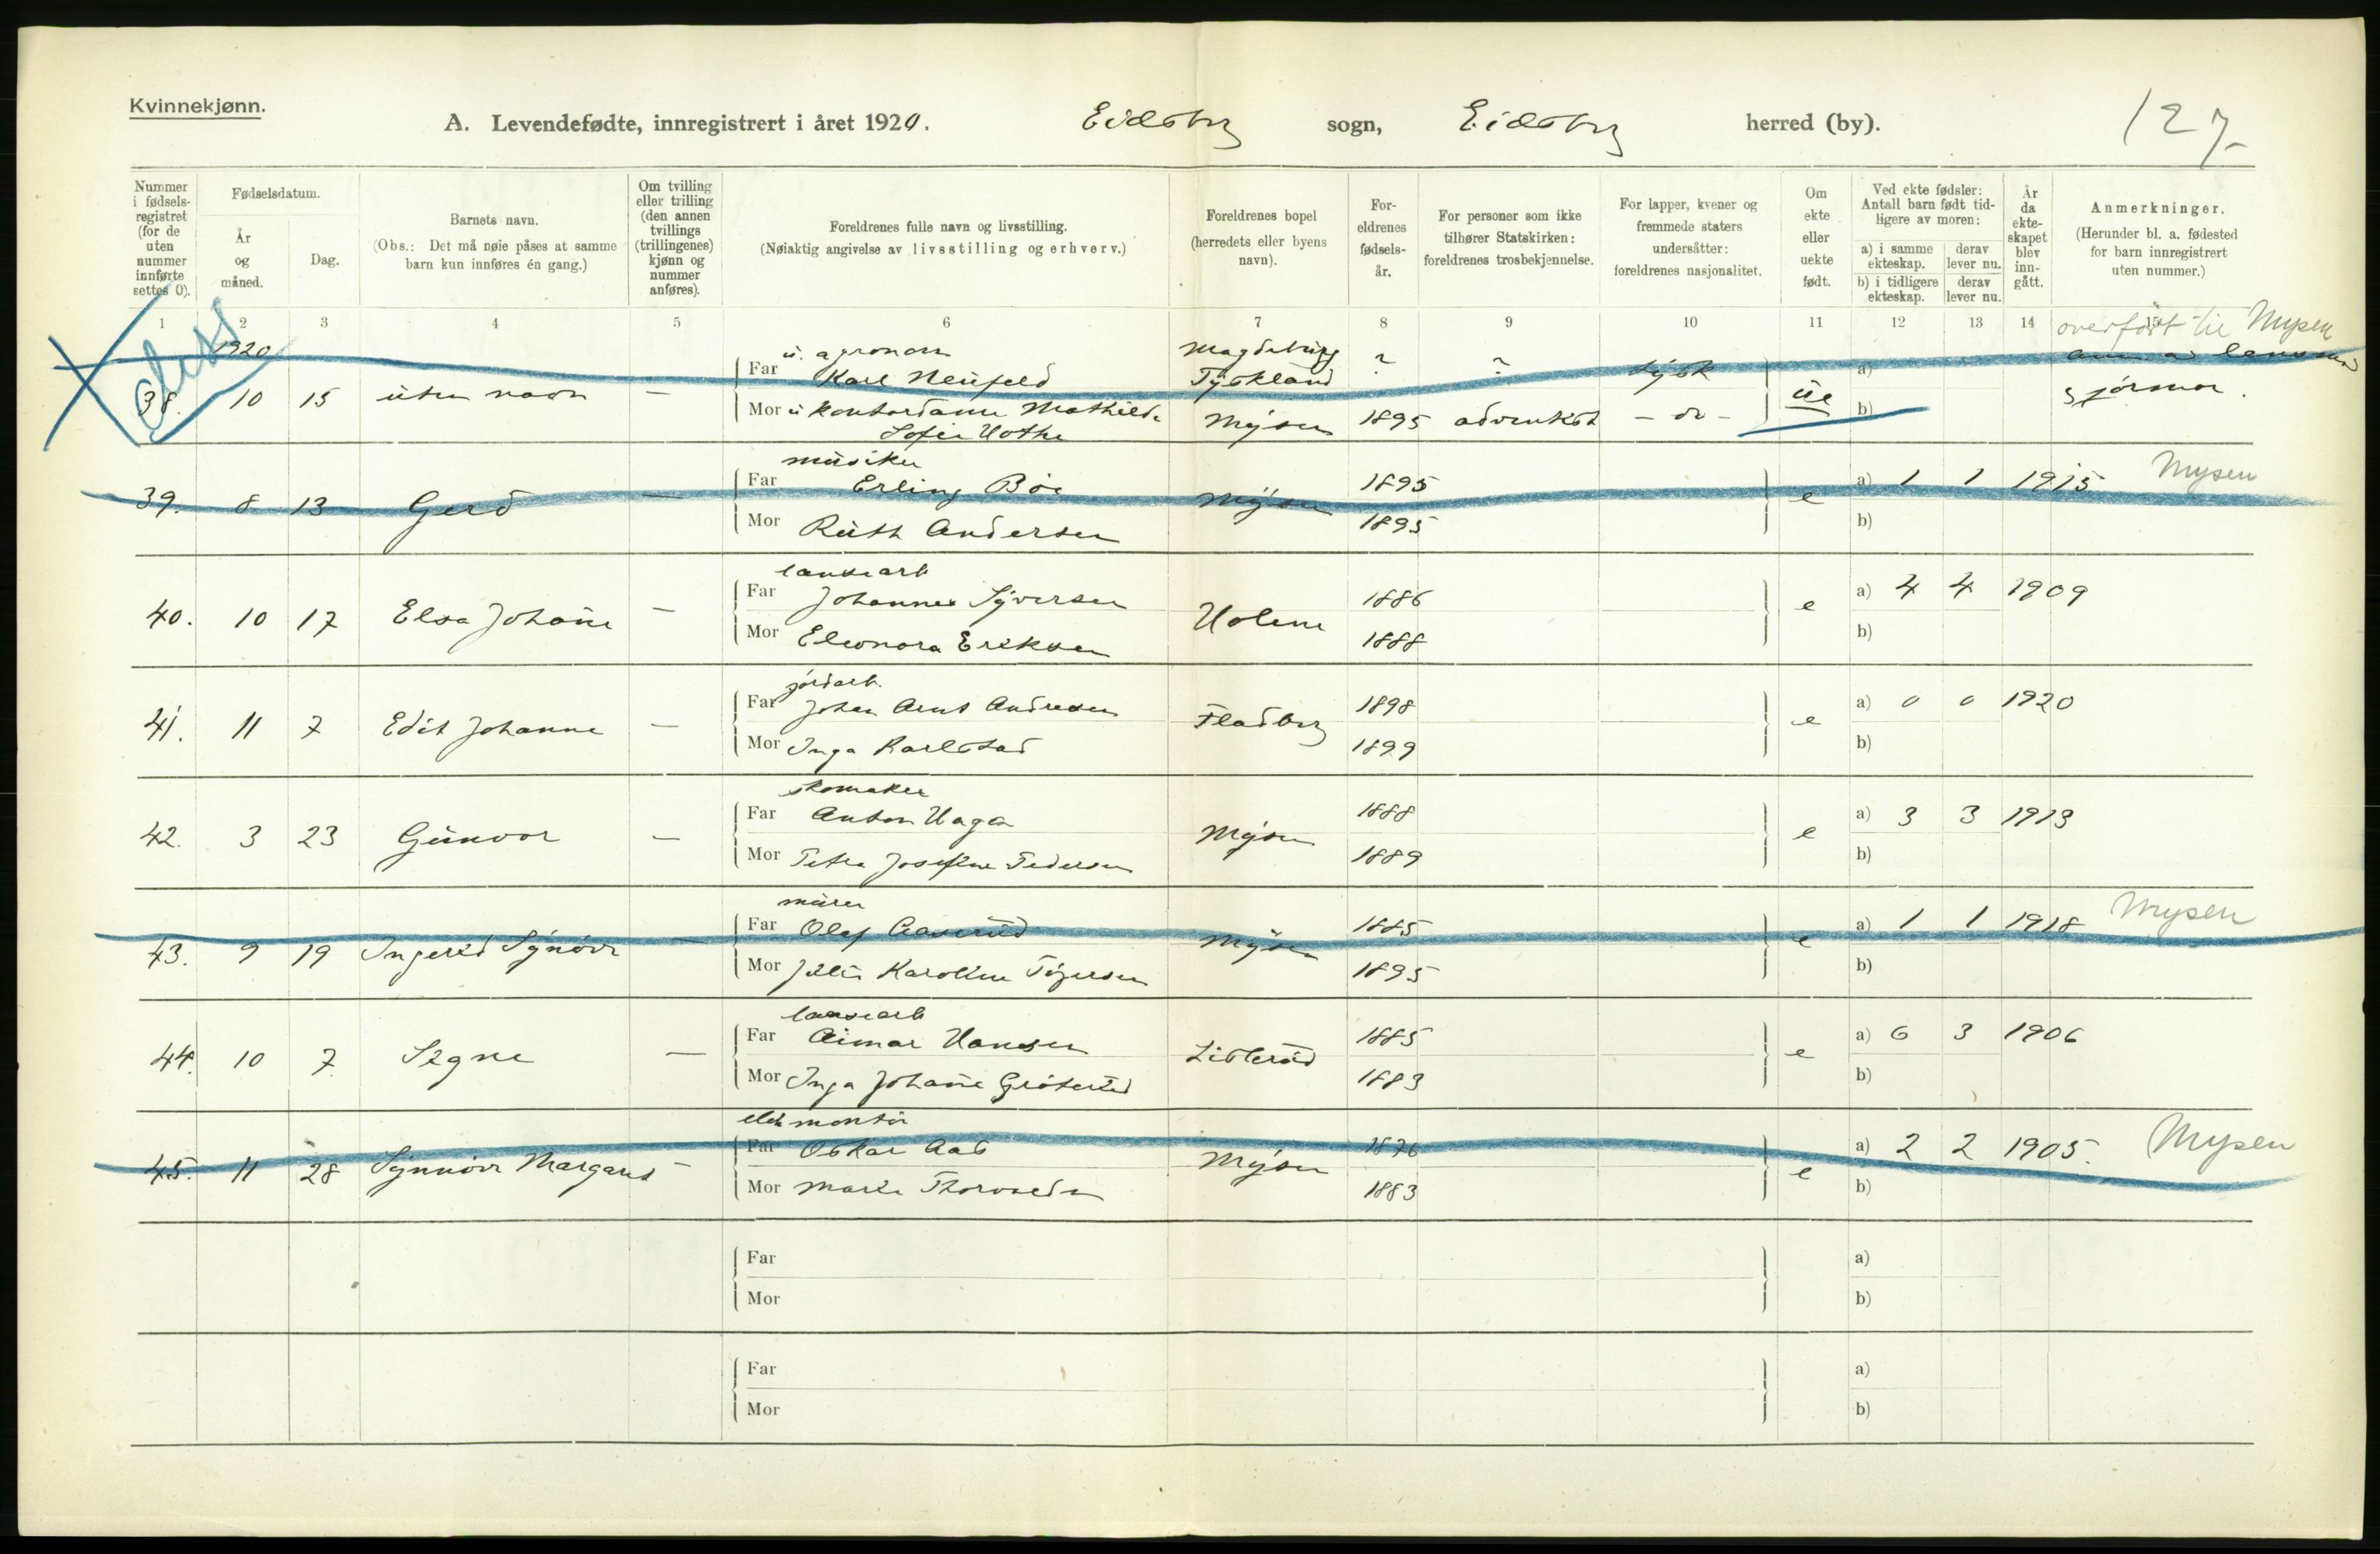 Kvinnekjønn.
A. Levendefødte, innregistrert i året 1920. Eidsberg sogn, Eidsberg herred (by). 127.
Nummer i fødselsregistret (for de uten nummer innførte settes 0).
Fødselsdatum.
År og måned.
Dag.
Barnets navn.
(Obs.: Det må nøie påses at samme barn kun innføres én gang.)
Om tvilling eller trilling (den annen tvillings (trillingenes) kjønn og nummer anføres).
Foreldrenes fulle navn og livsstilling.
(Nøiaktig angivelse av livsstilling og erhverv.)
Foreldrenes bopel (herredets eller byens navn).
Foreldrenes fødselsår.
For personer som ikke tilhører Statskirken: foreldrenes trosbekjennelse.
For lapper, kvener og fremmede staters undersåtter: foreldrenes nasjonalitet.
Om ekte eller uekte født.
Ved ekte fødsler: Antall barn født tidligere av moren:
a) i samme ekteskap. derav lever nu.
b) i tidligere ekteskap. derav lever nu.
År da ekteskapet blev inngått.
Anmerkninger.
(Herunder bl. a. fødested for barn innregistrert uten nummer.)
1 2 3 4 5 6 7 8 9 10 11 12 13 14 15
overført til Mysen
1920
38. 10 15 uten navn —
u. agronom
Far Karl Neufeld Magdeburg Tyskland ? ? tysk ue a)
Mor u kontordame Mathilde Sofie Hothe Mysen 1895 adventist - do - b)
jormor.
39. 8 13 Gerd —
musiker
Far Erling Böe Mysen 1895 e a) 1 1 1915 Mysen
Mor Ruth Andersen 1895 b)
40. 10 17 Elsa Johanne —
Far Johannes Syversen 1886 e a) 4 4 1909
Mor Eleonora Eriksen 1888 b)
41. 11 7 Edit Johanne —
jordarb.
Far Johan Arnt Andresen Fladberg 1898 e a) 0 0 1920
Mor Inga Karlstad 1899 b)
42. 3 23 Gunvor —
skomaker
Far Anton Haga Mysen 1888 e a) 3 3 1913
Mor Petra Josefine Pedersen 1889 b)
43. 9 19 Ingerid Synöve —
murer
Far Olaf Aaserud Mysen 1885 e a) 1 1 1918 Mysen
Mor Julie Karoline 1895 b)
44. 10 7 Signe —
Far Hansen 1885 e a) 6 3 1906
Mor Inga Johanne 1883 b)
45. 11 28 Synnöve Margaret —
elek montör
Far Oskar Aas Mysen 1876 e a) 2 2 1905. Mysen
Mor Marie 1883 b)
Far a)
Mor b)
Far a)
Mor b)